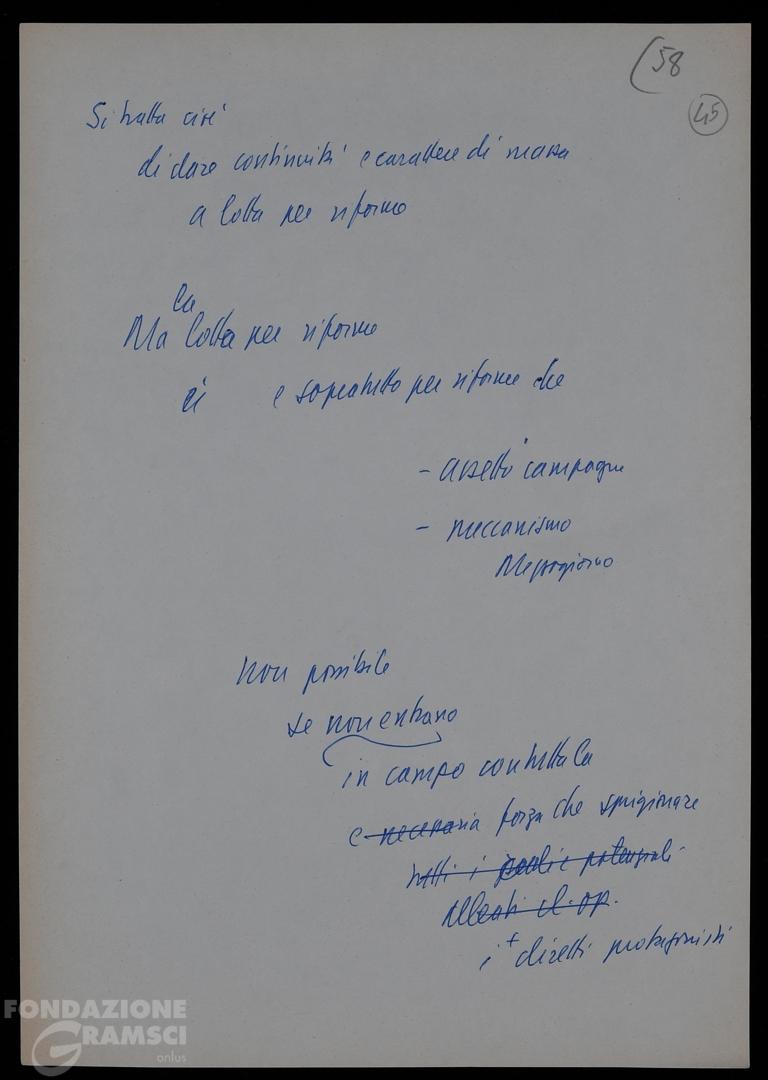 (58
45
Si tratta cioè
di dare continuità e carattere di massa
a lotta per riforme
la
Ma lotta per riforme
è e sopratutto per riforme che
- assetto campagne
- meccanismo
Mezzogiorno
Non possibile
se non entrano
in campo con tutta la
e necessaria forza che sprigionare
tutti i reali e potenziali
alleati cl. op.
i + diretti protagonisti
FONDAZIONE
GRAMSCI
onlus